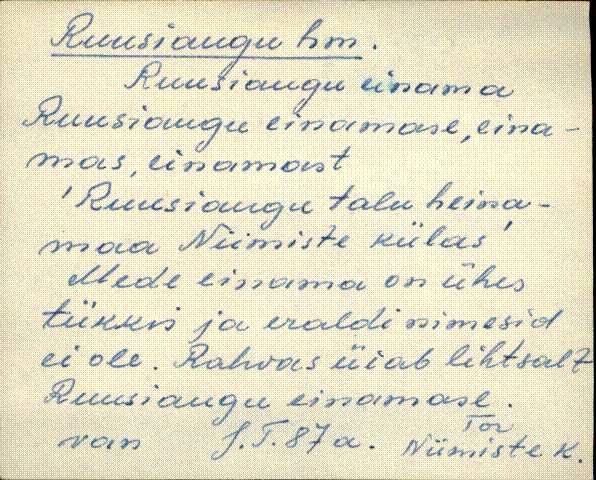 Ruusiaugu hm.
Ruusiaugu einama
Ruusiaugu einamase, eina-
mas, einamast
'Ruusiaugu talu heina-
maa Niimiste külas'
Mede einama on ühes
tükkis ja eraldi nimesid
ei ole. Rahvas üiab lihtsalt
Ruusiaugu einamase.
van J.T. 87 a. Tor
Niimiste k.